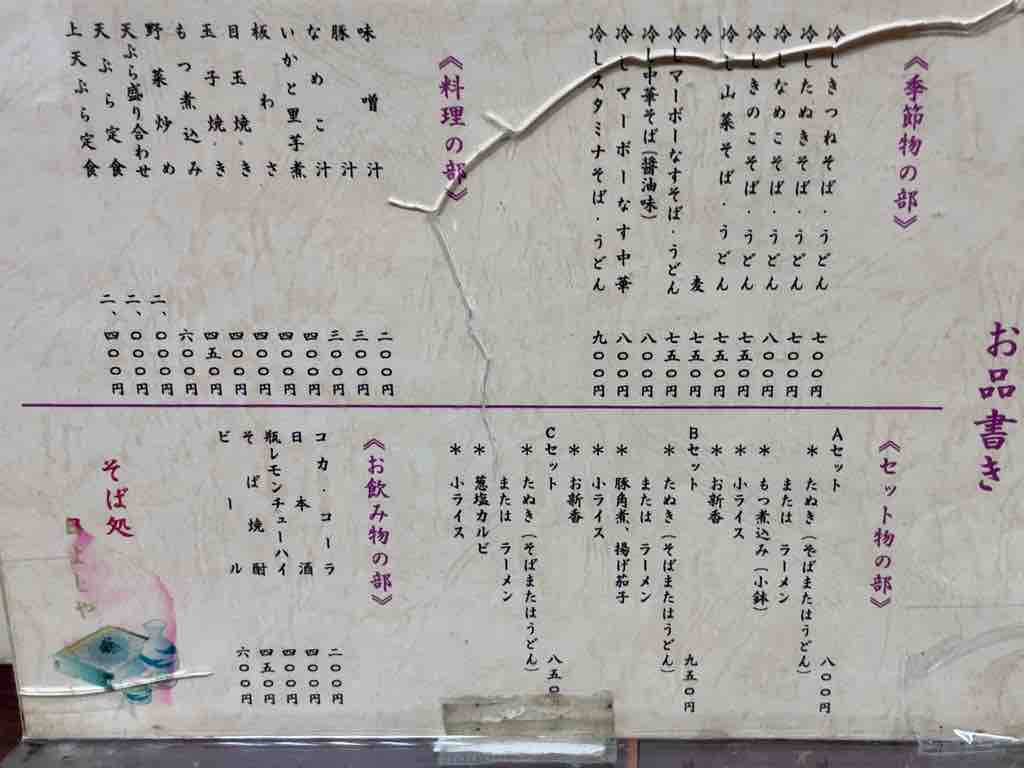 お品書き
《季節物の部》
冷しきつねそば・うどん 七〇〇円
冷したぬきそば・うどん 七〇〇円
冷しなめこそば・うどん 八〇〇円
冷しきのこそば・うどん 七五〇円
冷し山菜そば・うどん 七五〇円
冷麦 七五〇円
冷しマーボーなすそば・うどん 七五〇円
冷し中華そば(醤油味) 八〇〇円
冷しマーボーなす中華 八〇〇円
冷しスタミナそば・うどん 九〇〇円
《料理の部》
味噌汁 二〇〇円
豚汁 三〇〇円
なめこ汁 三〇〇円
いかと里芋煮 四〇〇円
板わさ 四〇〇円
目玉焼き 四〇〇円
玉子焼き 四〇〇円
もつ煮込み 四五〇円
野菜炒め 六〇〇円
天ぷら盛り合わせ 二、〇〇〇円
天ぷら定食 二、〇〇〇円
上天ぷら定食 二、四〇〇円
《セット物の部》
Aセット 八〇〇円
＊たぬき(そばまたはうどん)
または ラーメン
＊もつ煮込み(小鉢)
＊小ライス
＊お新香
Bセット 九五〇円
＊たぬき(そばまたはうどん)
または ラーメン
＊豚角煮、揚げ茄子
＊小ライス
＊お新香
Cセット 八五〇
＊たぬき(そばまたはうどん)
または ラーメン
＊葱塩カルビ
＊小ライス
《お飲み物の部》
コカ・コーラ 二〇〇円
日本酒 四〇〇円
瓶レモンチューハイ 四〇〇円
そば焼酎 四五〇円
ビール 六〇〇円
そば処